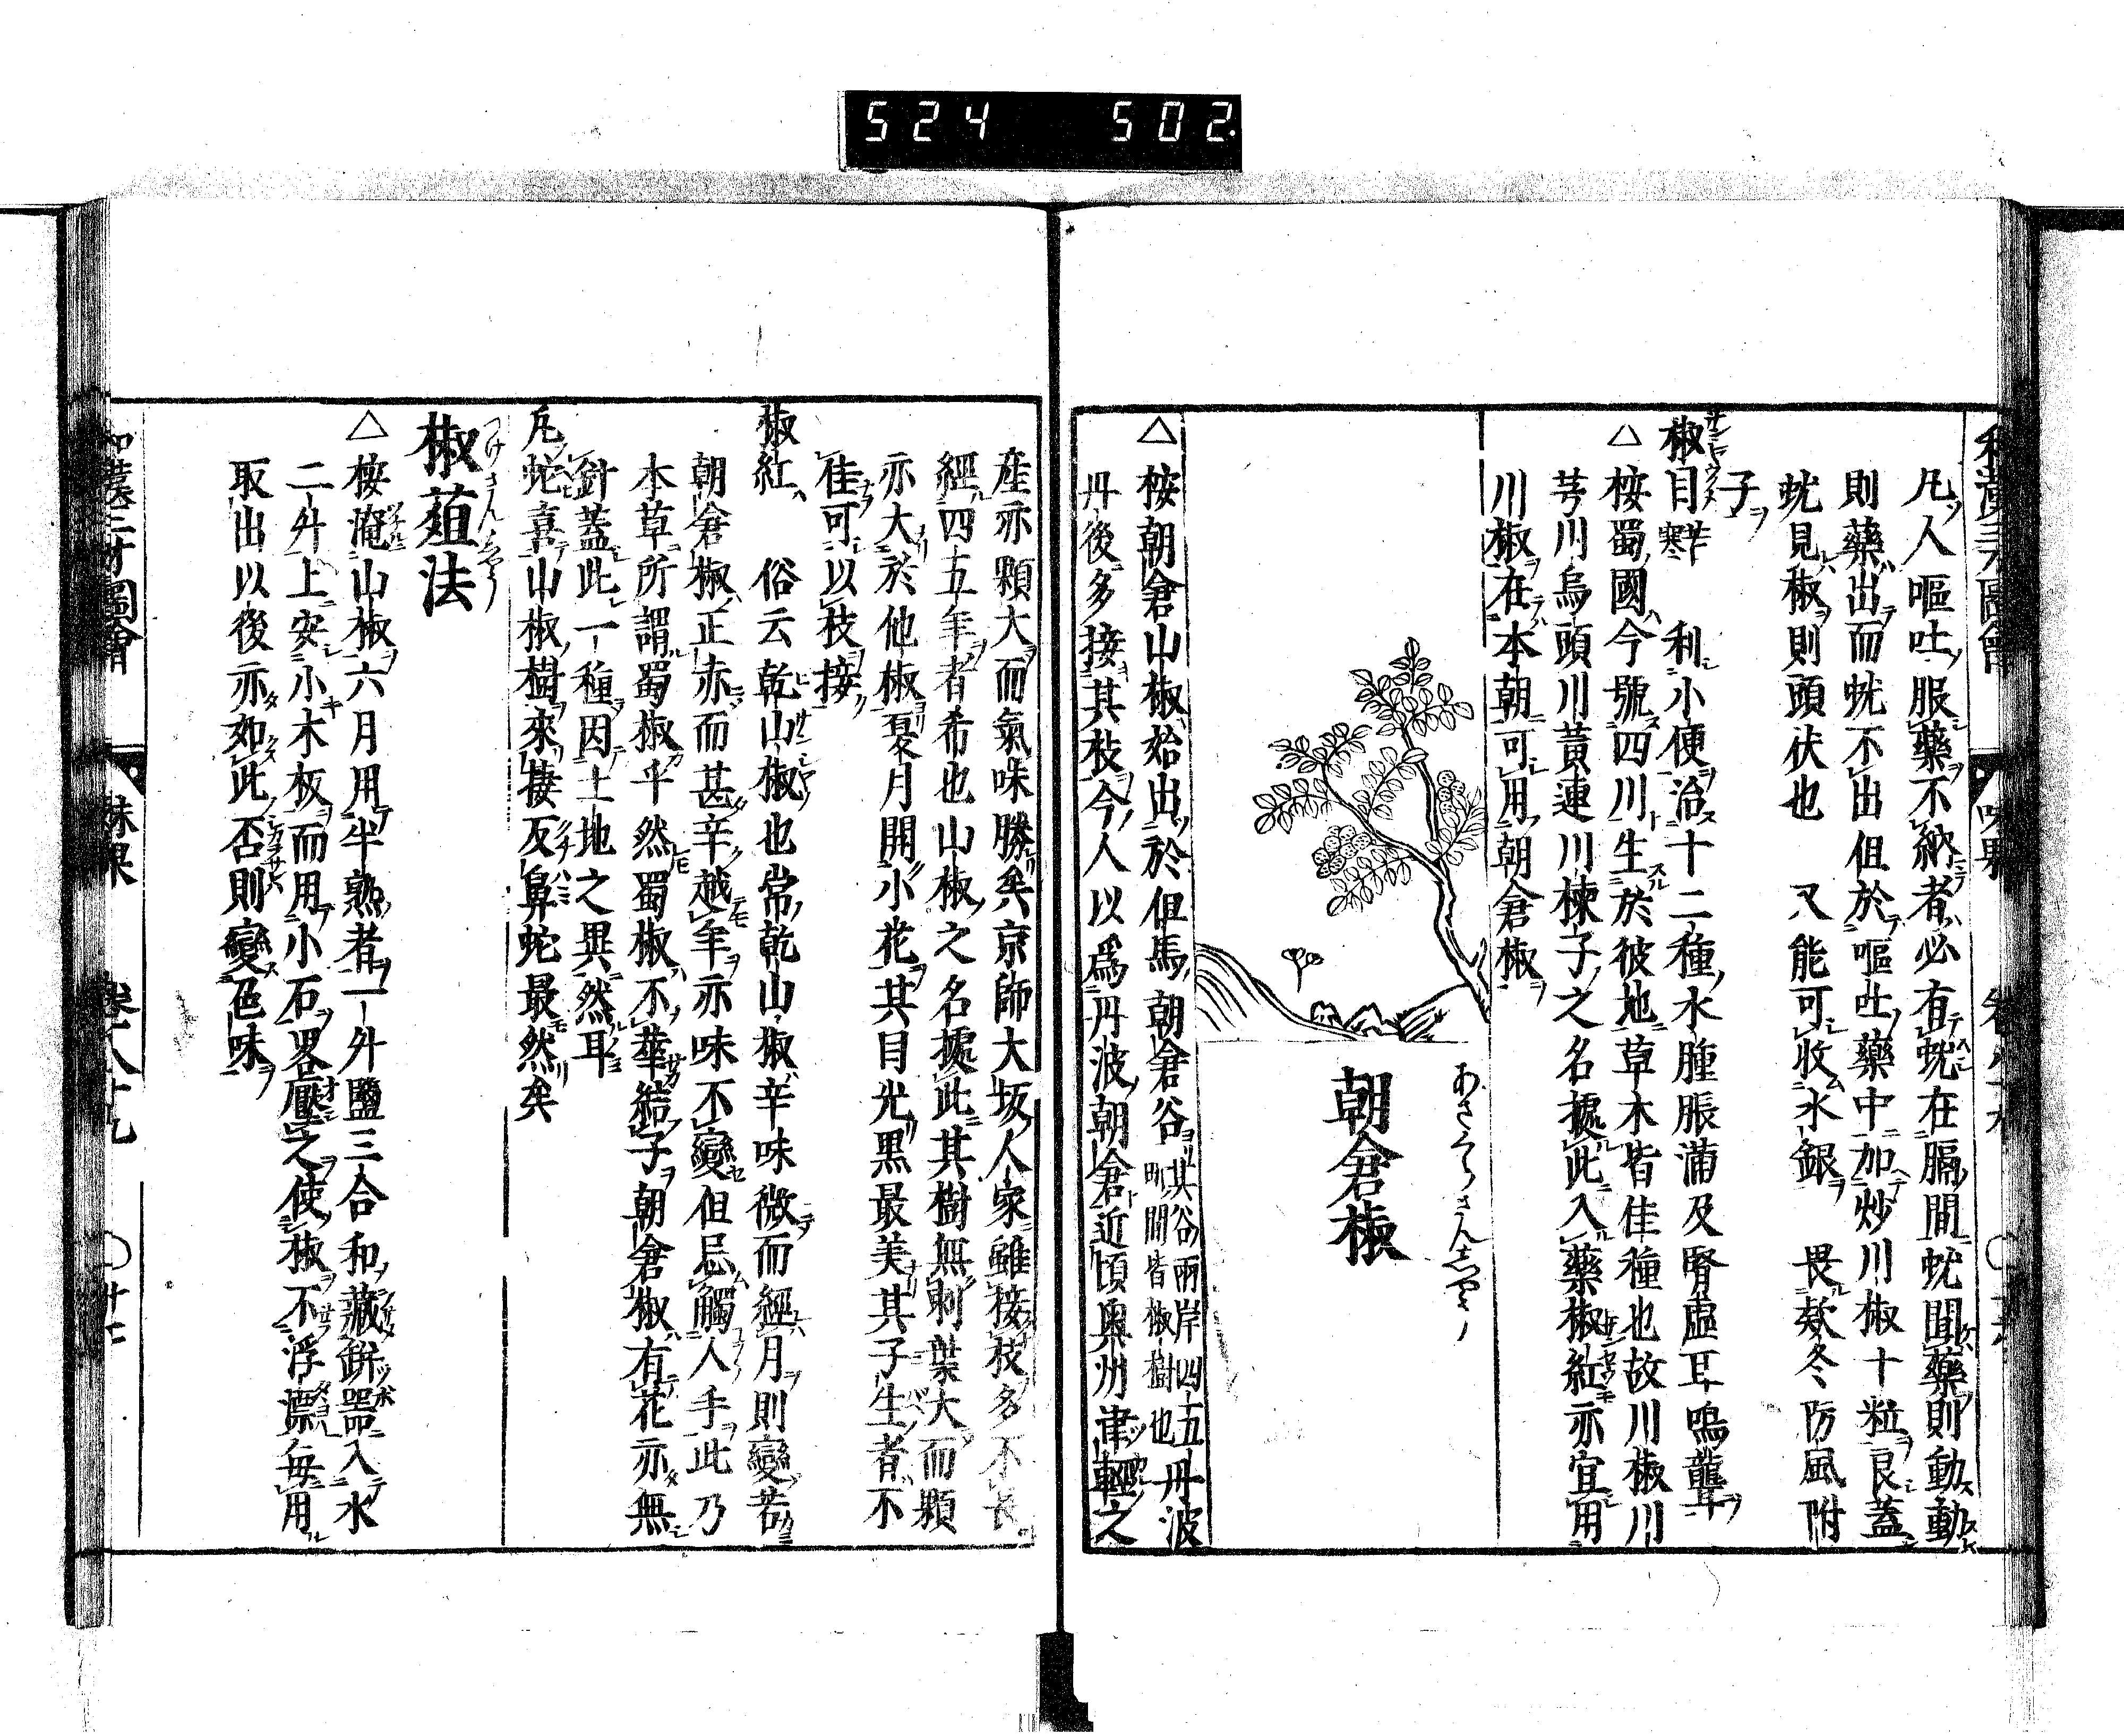 524 502
和漢三才圖會 味果 卷八十九
凡人嘔吐服藥不納者必有蚘在膈間蚘聞藥則動動
則藥出而蚘不出但於嘔吐藥中加炒川椒十粒良蓋
蚘見椒則頭伏也 又能可收水銀 畏欵冬防風附
子
椒目 辛寒 利小便治十二種水腫脹滿及腎虛耳鳴聾
△按蜀國今號四川生於彼地草木皆佳種也故川椒川
芎川烏頭川黃連川楝子之名據此入藥椒紅亦宜用
川椒在本朝可用朝倉椒
あさくらさんせう
朝倉椒
△按朝倉山椒始出於但馬朝倉谷其谷兩岸四五町間皆椒樹也丹波
丹後多接其枝今人以爲丹波朝倉近頃奧州津輕之
産亦顆大而氣味勝矣京師大坂人家雖接枝多不長
經四五年者希也山椒之名據此其樹無刺葉大而顆
亦大於他椒夏月開小花其目光黒最美其子生者不
佳可以枝接
椒紅 俗云乾山椒也常乾山椒辛味微而經月則變苦
朝倉椒正赤而甚辛越年亦味不變但忌觸人手此乃
本草所謂蜀椒乎然蜀椒不華結子朝倉椒有花亦無
針蓋此一種因土地之異然耳
凡蛇喜山椒樹來棲反鼻蛇最然矣
つけさんせう
椒葅法
△按淹山椒六月用半熟者一升鹽三合和藏缾噐入水
二升上安小木板而用小石畧壓之使椒不浮漂毎用
取出以後亦如此否則變色味
和漢三才圖會 味果 卷八十九